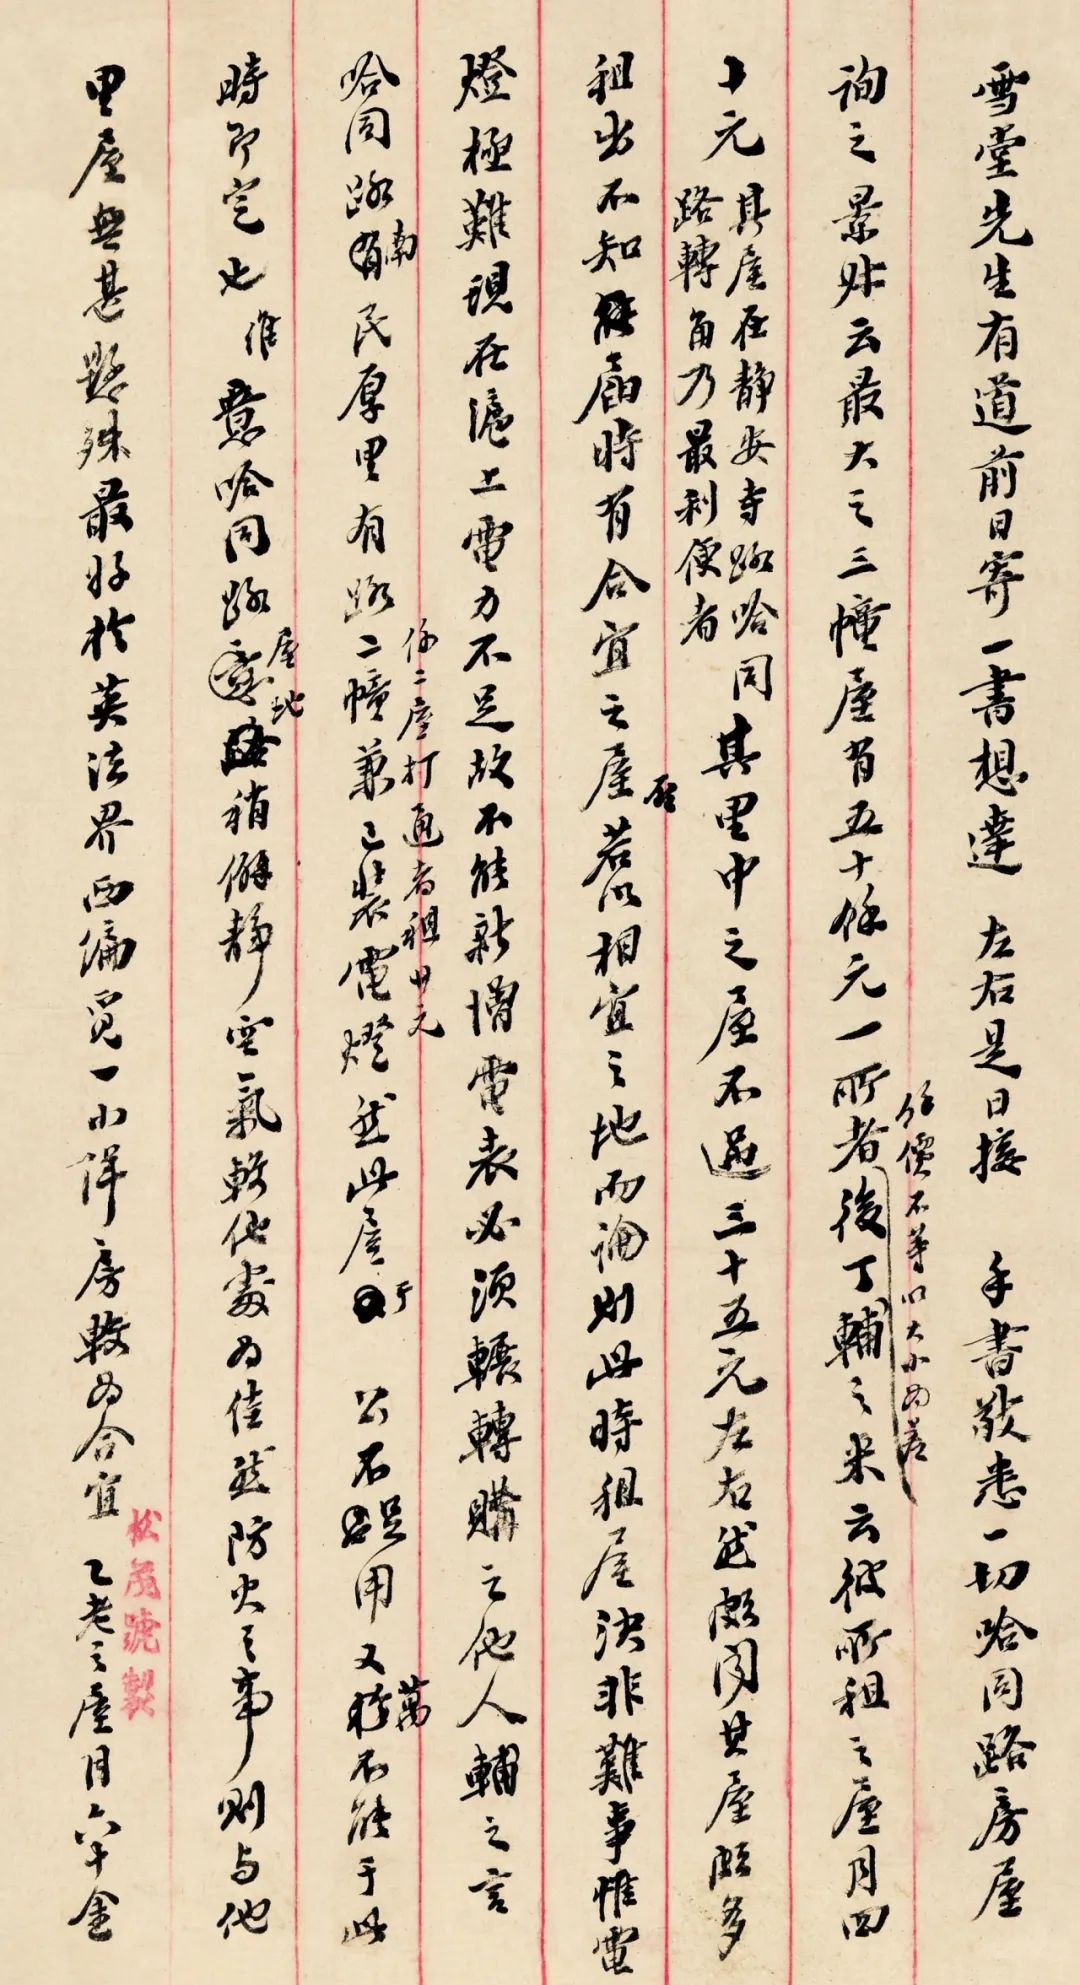 雪堂先生有道前日寄一書想達 左右是日接 手書敬悉一切哈同路房屋
詢之景叔云最大之三幢屋有五十餘元一所者後丁輔之來云彼所租之屋月四
餘價不等以大小為差
十元
其屋在靜安寺路哈同
路轉角乃最利便者
其里中之屋不過三十五元左右然頗聞其屋頗多
租出不知屆時有合宜之屋否若以相宜之地而論則此時租屋決非難事惟電
燈極難現在滬上電力不足故不能新增電表必須輾轉購之他人輔之言
哈同路南有民厚里有路二幢兼已裝電燈然此屋于 公不足用又萬不能于此
係二屋打通者租廿元
時即定也惟意哈同路屋地稍僻靜空氣較他處為佳然防火之事則与他
里屋無甚懸殊最好於英法界西偏覓一小洋房較為合宜 乙老之屋月六十金
松茂號製